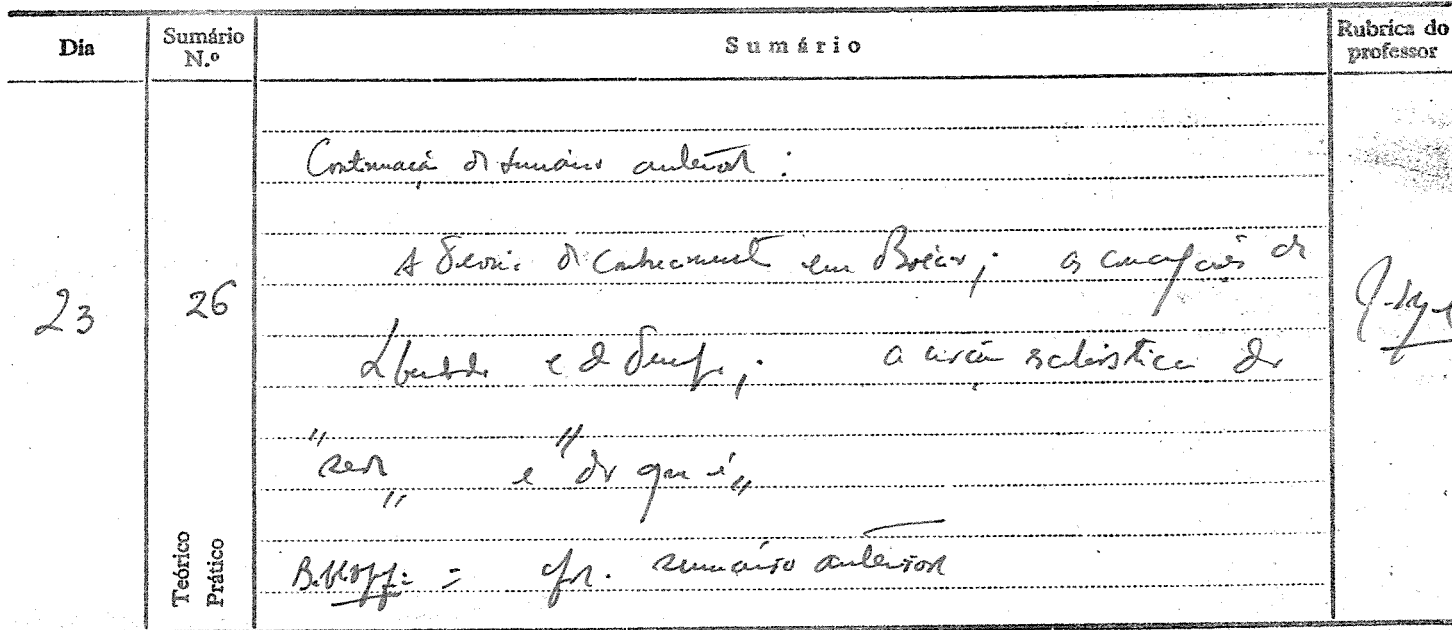 Dia
Sumário N.º
Sumário
Rubrica do professor
23
26
Teórico
Prático
Continuação do sumário anterior:
A Teoria do Conhecimento em Boécio; as concepções de
Liberdade e de Tempo; a visão escolástica do
"ser" e "do que é"
Bibliogf: = cfr. sumário anterior